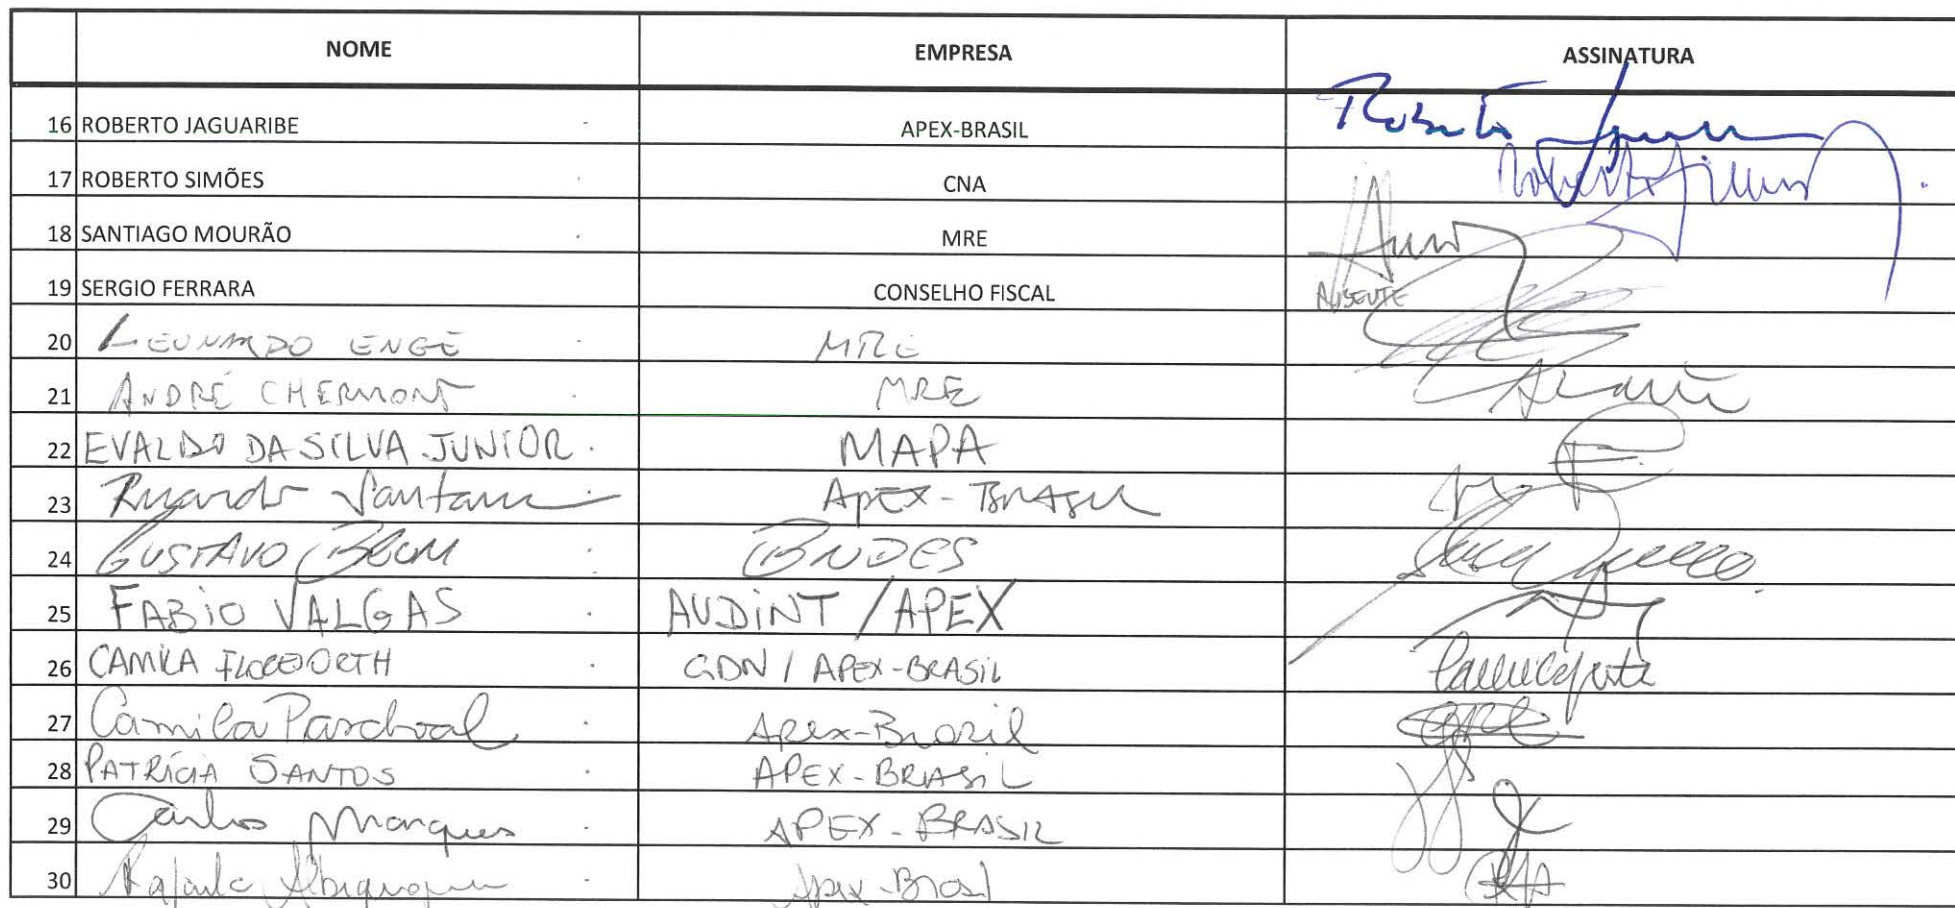 NOME EMPRESA ASSINATURA
16 ROBERTO JAGUARIBE APEX-BRASIL Roberto
17 ROBERTO SIMÕES CNA Roberto Simões
18 SANTIAGO MOURÃO MRE
19 SERGIO FERRARA CONSELHO FISCAL AUSENTE
20 LEONARDO ENGE MRE
21 ANDRÉ CHERMONT MRE
22 EVALDO DA SILVA JUNIOR MAPA
23 Ricardo Santana APEX-BRASIL
24 GUSTAVO BNDES
25 FABIO VALGAS AUDINT / APEX
26 CAMILA GDN / APEX-BRASIL
27 Camila Apex-Brasil
28 PATRÍCIA SANTOS APEX-BRASIL
29 Carlos Marques APEX-BRASIL
30 Rafaela Albuquerque Apex-Brasil